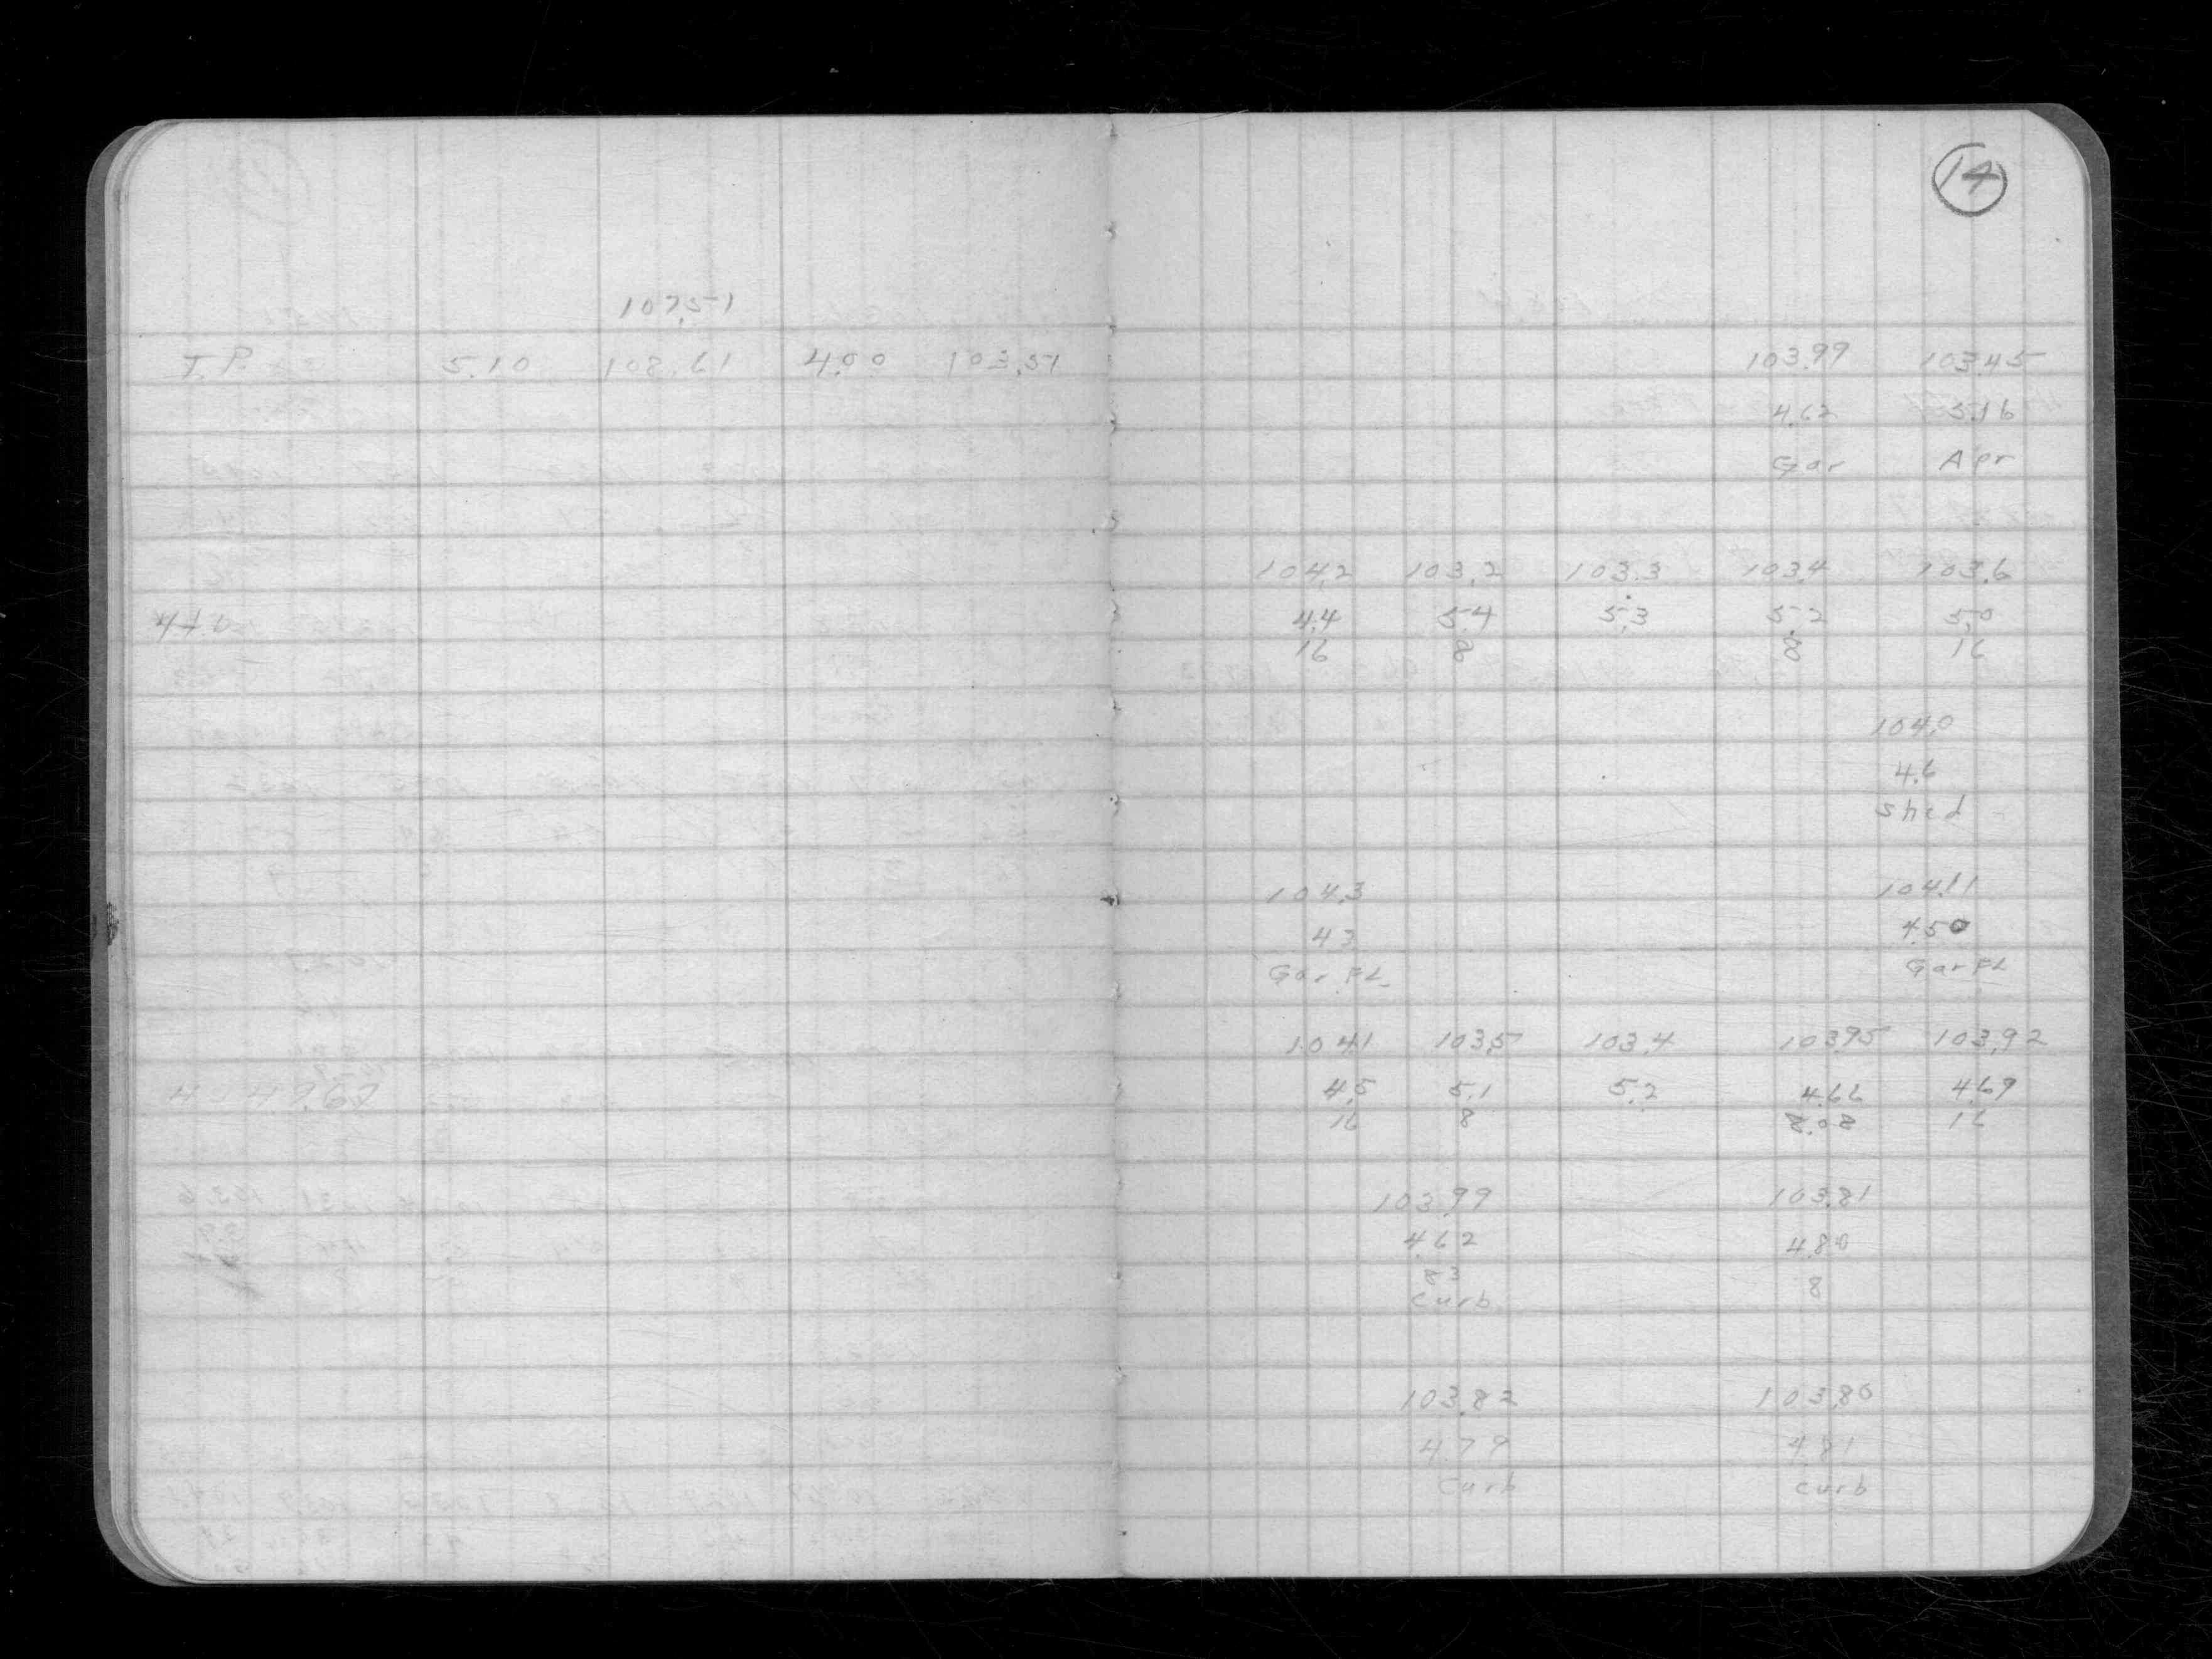 14
107.51
T.P. 5.10 108.61 4.00 103.51
103.99 103.45
4.62 5.16
Gar Apr
104.2 103.2 103.3 103.4 103.6
4+0 4.4 5.4 5.3 5.2 5.0
16 8 8 16
104.0
4.6
Shed
104.3 104.11
4.3 4.50
Gar FL Gar FL
104.1 103.5 103.4 103.95 103.92
4.5 5.1 5.2 4.66 4.69
16 8 8.08 16
103.99 103.81
4.62 4.80
8.3 8
curb
103.82 103.80
4.79 4.81
Curb curb